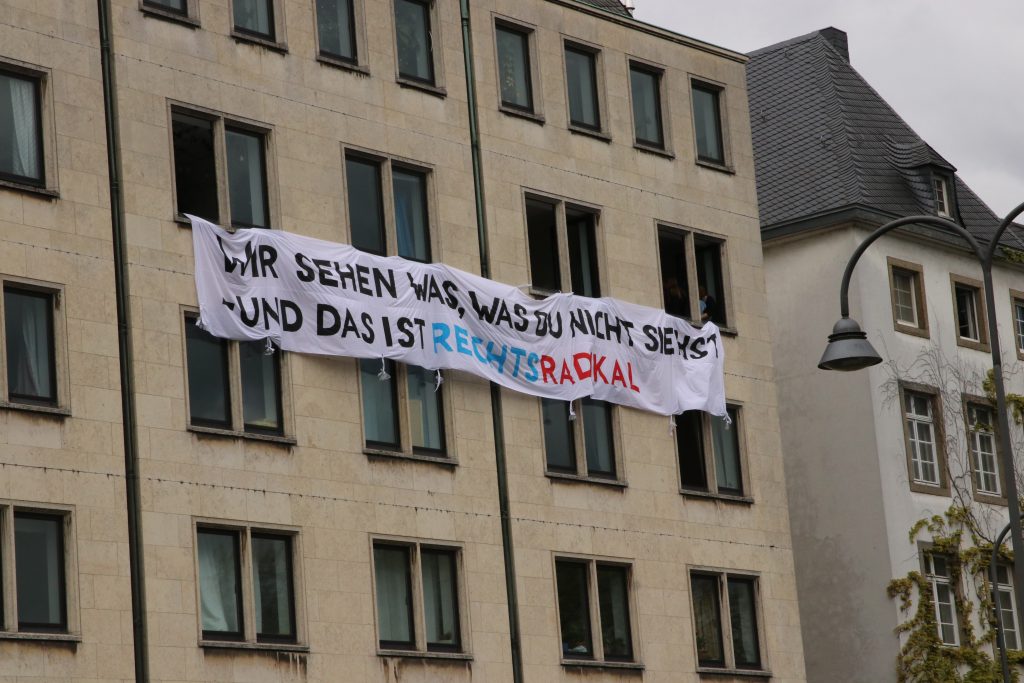 WIR SEHEN WAS, WAS DU NICHT SIEHST
- UND DAS IST RECHTSRADIKAL